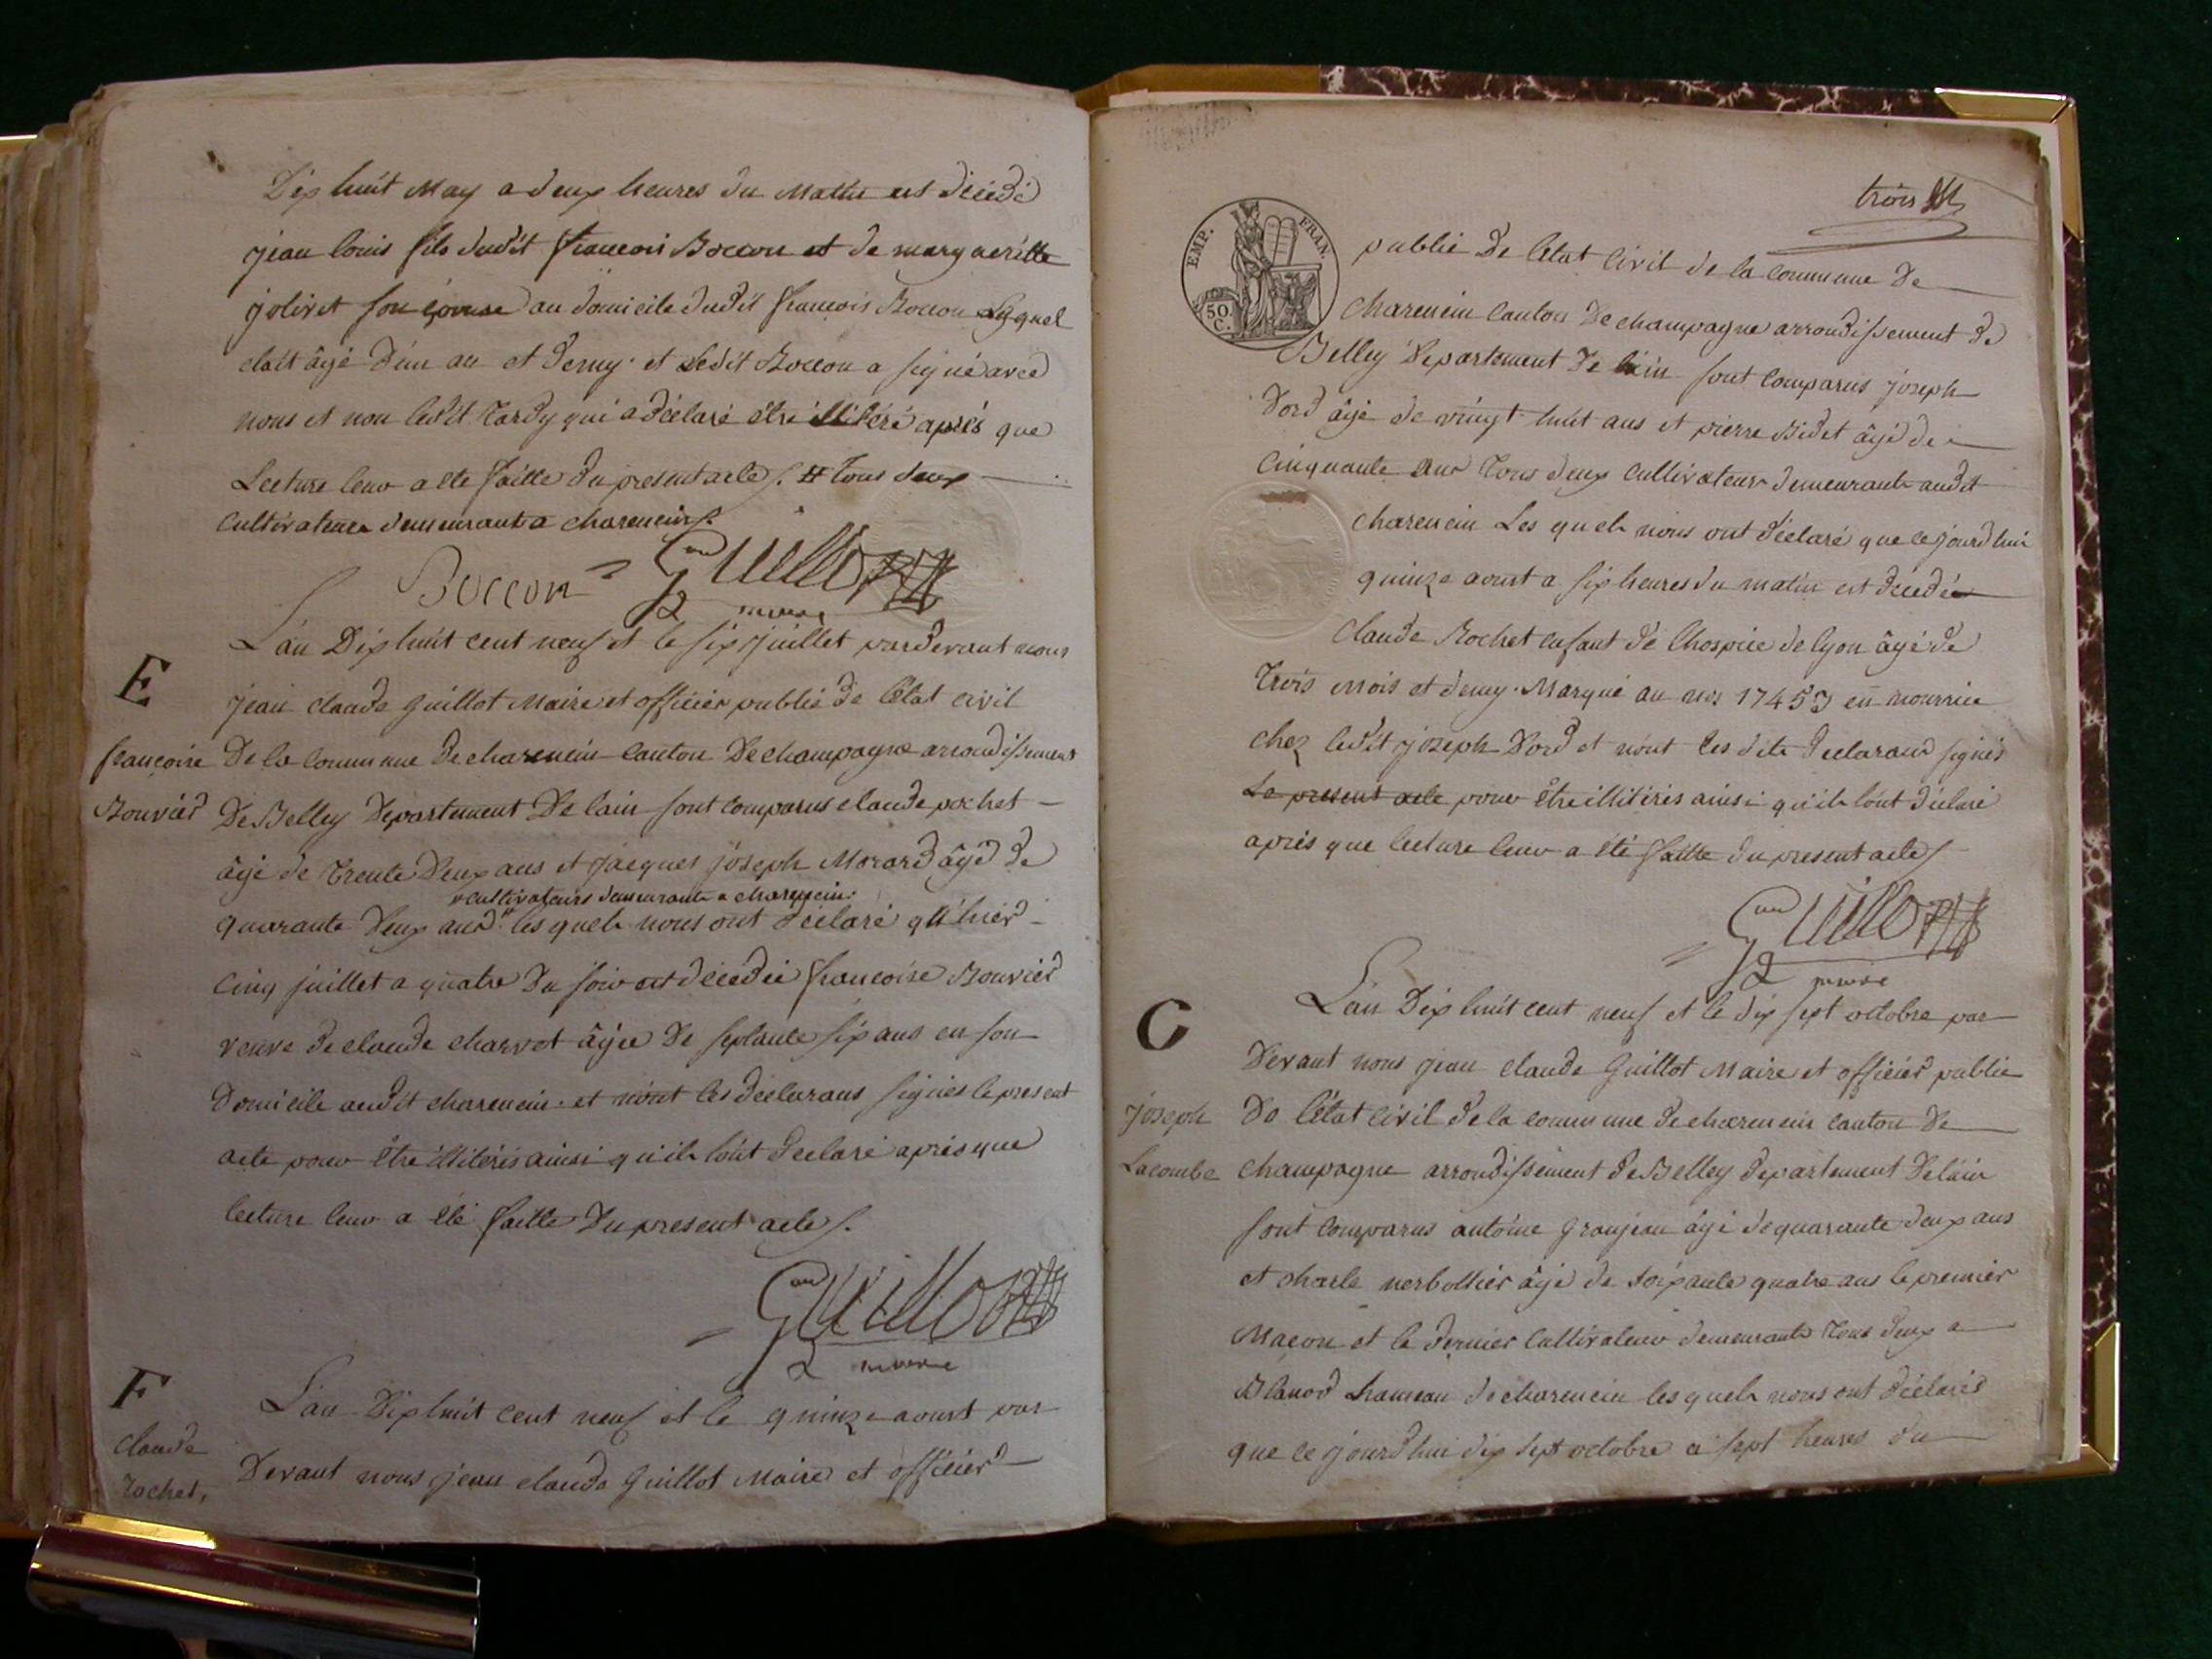 Dix huit May a deux heures du Matin est décédé
jean louis fils dudit francois Boccon et de margueritte
jolivet son épouse au domicile dudit francois Boccon Lequel
etait âgé d'un an et demy. et Ledit Boccon a signé avec
nous et non ledit Tardy qui a déclaré être illitéré après que
Lecture leur a eté faitte du present acte /. # tous deux
cultivateurs demeurant a charencin /.
Boccon Guillot
maire
L'an Dix huit cent neuf et le six juillet pardevant nous
E
jean claude Guillot Maire et officier public de l'état civil
francoise De la commune de charencin canton De champagne arrondissement
Bouvier De Belley Departement De lain sont comparus claude pochet
âgé de trente Deux ans et jacques joseph Morard âgé de
# cultivateurs demeurants a charencin.
quarante Deux ans # les quels nous ont déclaré qu'hier
cinq juillet a quatre du soir est décédée francoise Bouvier
veuve de claude charvet âgée de septante six ans en son
domicile audit charencin. et n'ont les declarans signés le present
acte pour être illitérés ainsi qu'ils l'ont declaré après que
lecture leur a été faitte du present acte /.
Guillot
maire
F
L'an Dix huit cent neuf et le quinze aoust par
claude
Devant nous jean claude Guillot Maire et officier
rochet,
trois
EMP. FRAN.
50. C.
public De l'état civil de la commune De
charencin canton De champagne arrondissement de
Belley Departement De lain sont comparus joseph
Dord âgé de vingt huit ans et pierre Bidet âgé de
cinquante ans Tous deux cultivateurs demeurants audit
charencin Les quels nous ont déclaré que ce jourd'hui
quinze aoust a six heures du matin est décédé
claude Rochet enfant de l'hospice de lyon âgé de
Trois Mois et demy. Marqué au nos 17453 en nourrice
chez ledit joseph Dord et n'ont les dits declarans signés
Le present acte pour être illitérés ainsi qu'ils l'ont déclaré
après que lecture leur a été faitte du present acte /
Guillot
maire
G
L'an Dix huit cent neuf et le dix sept octobre par
Devant nous jean claude Guillot Maire et officier public
joseph De l'état civil de la commune de charencin canton De
Lacombe champagne arrondissement de Belley departement De lain
sont comparus antoine Granjean âgé de quarante deux ans
et charle nerbollier âgé de soixante quatre ans le premier
Maçon et le dernier cultivateur demeurants Tous deux a
Blanod hameau de charencin les quels nous ont déclarés
que ce jourd'hui dix sept octobre a sept heures du